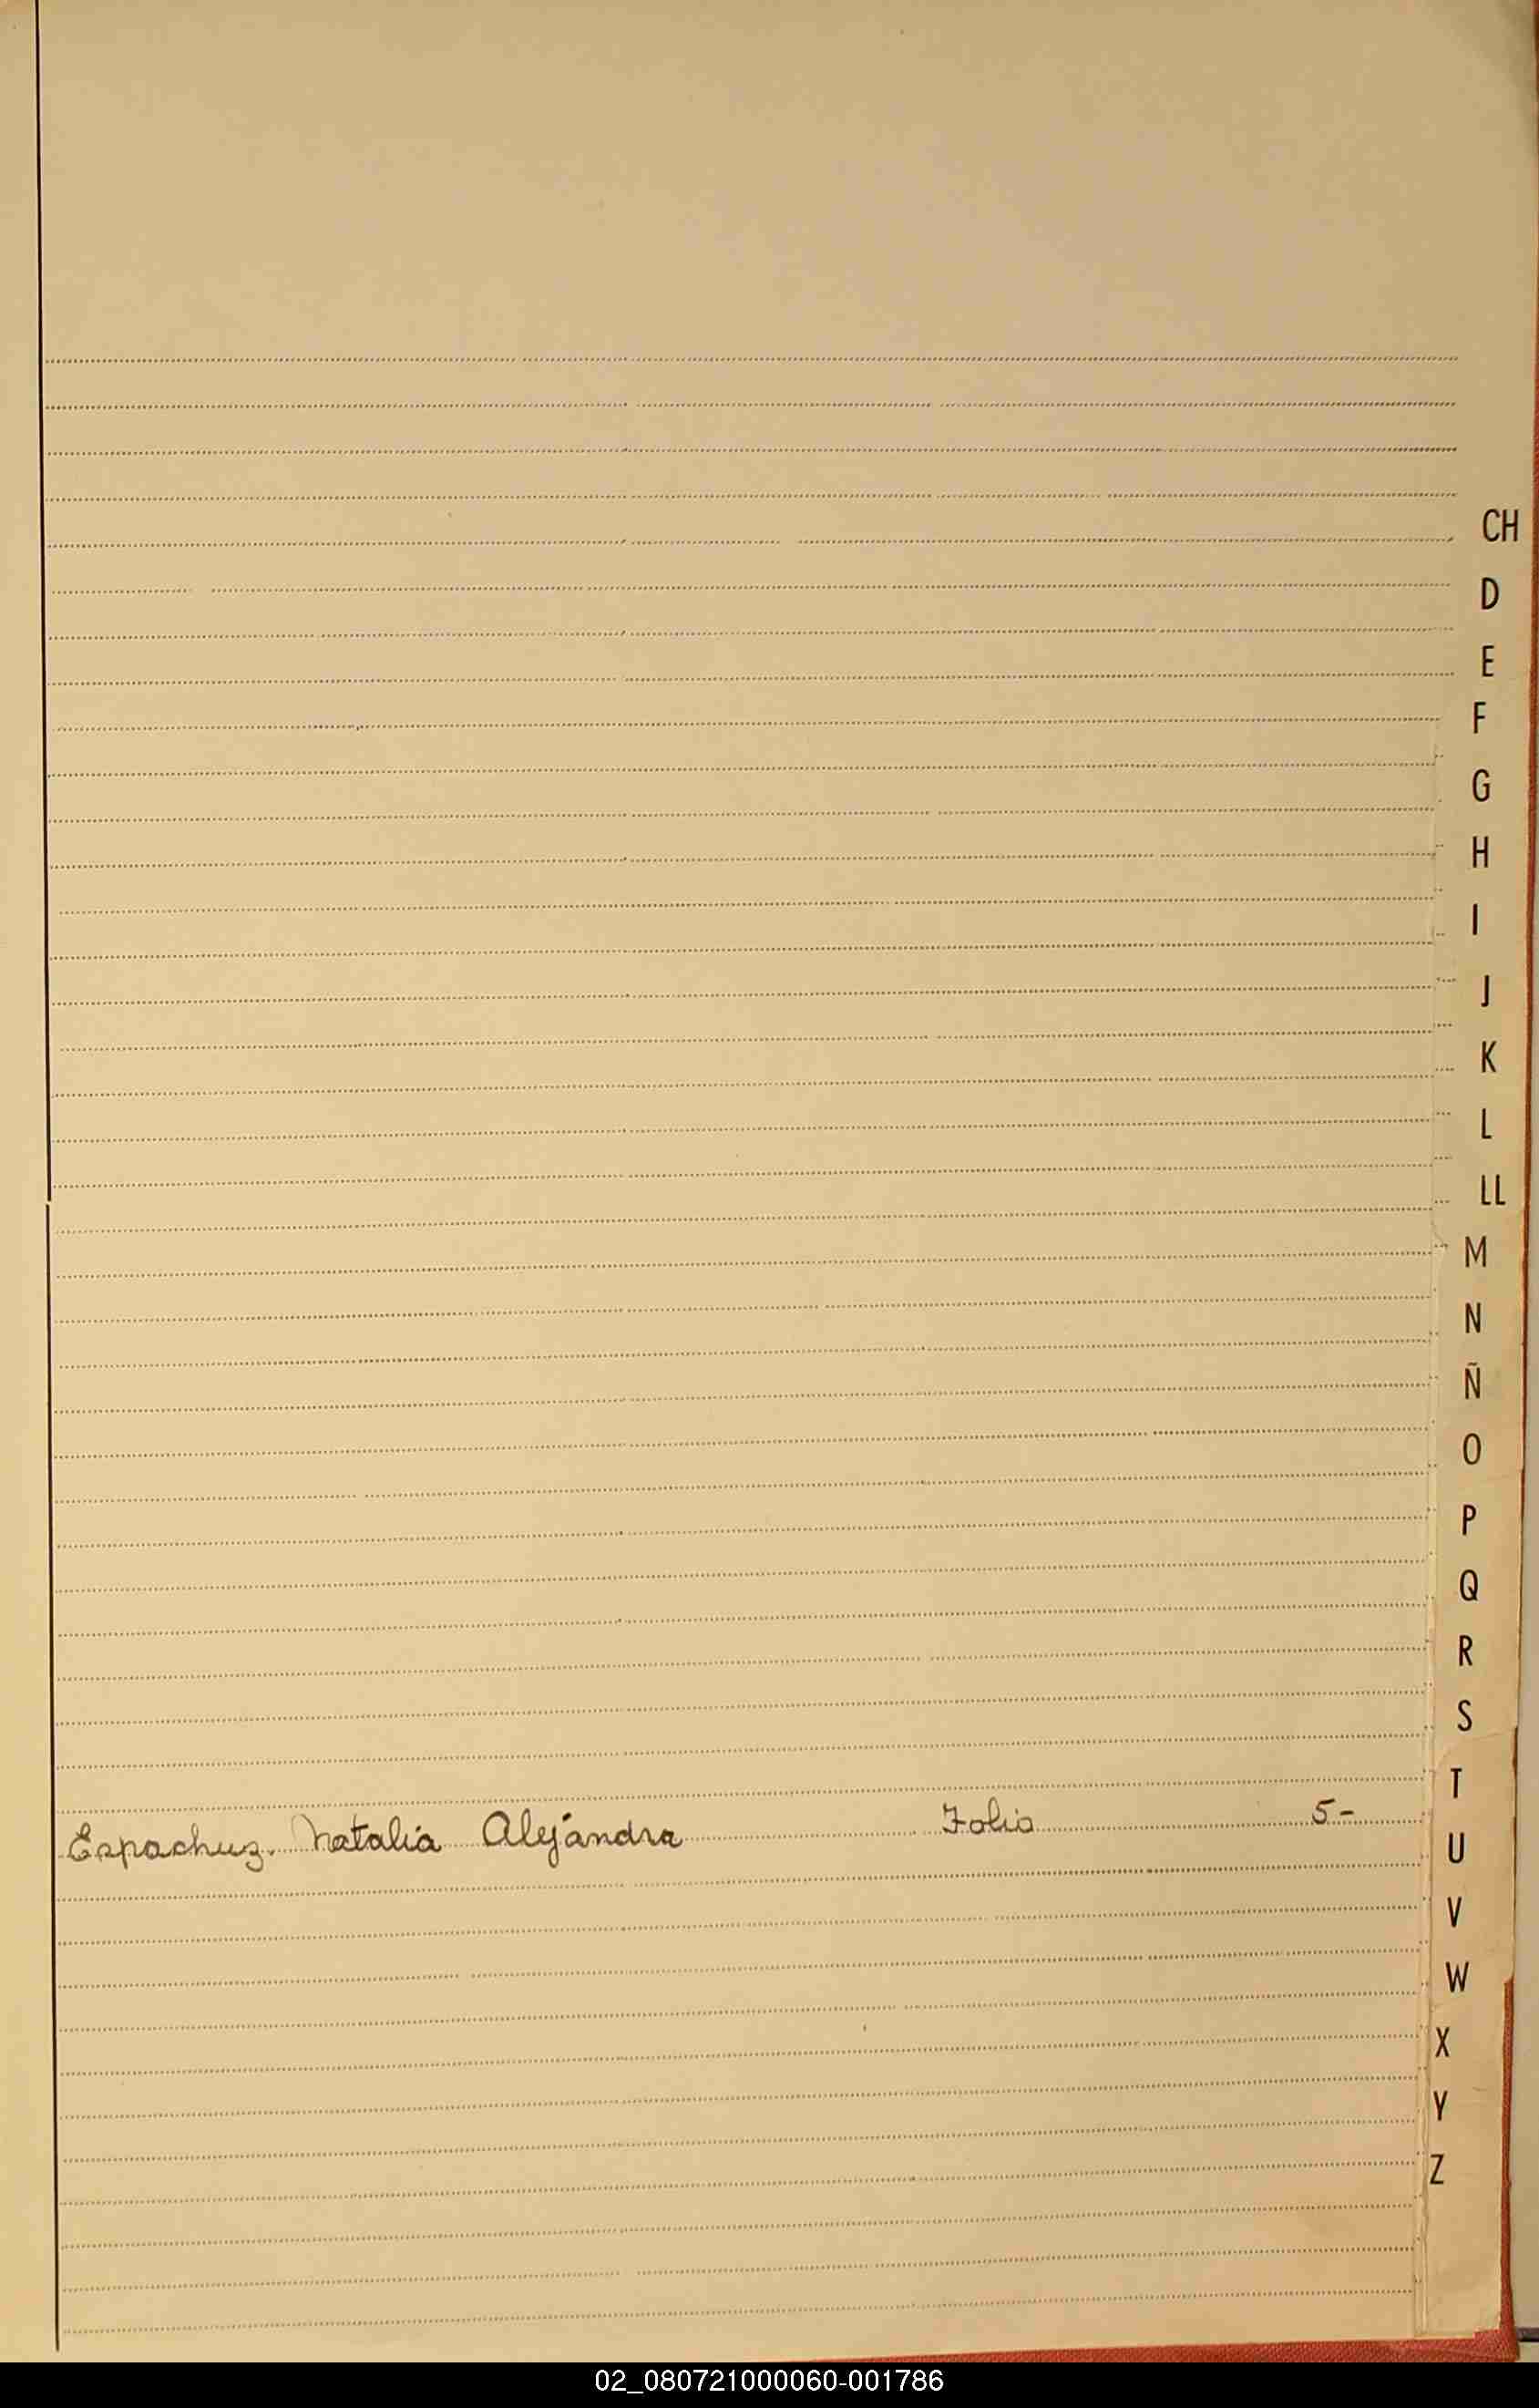 CH
D
E
F
G
H
I
J
K
L
LL
M
N
Ñ
O
P
Q
R
S
T
Espachuz. Natalia Alejandra Folio 5-
U
V
W
X
Y
Z
02_080721000060-001786